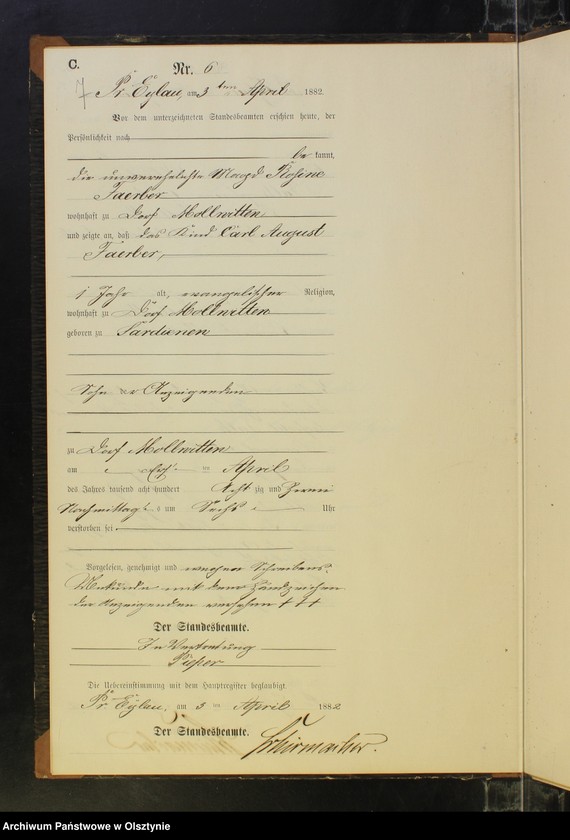 C.
Nr. 6
Pr. Eylau, am 3ten April 1882.
Vor dem unterzeichneten Standesbeamten erschien heute, der
Persönlichkeit nach
be kannt,
die unverehelichte Magd Rosine
Faerber
wohnhaft zu Dorf Mollwitten
und zeigte an, daß das Kind Carl August
Faerber,
1 Jahr alt, evangelischer Religion,
wohnhaft zu Dorf Mollwitten
geboren zu
Sohn der Anzeigenden
zu Dorf Mollwitten
am April
des Jahres tausend acht hundert Acht zig und zwei
Nachmittags um Sechs Uhr
verstorben sei
Vorgelesen, genehmigt und wegen Schreibens
Unkunde mit dem Handzeichen
der Anzeigenden versehen + + +
Der Standesbeamte.
In Vertretung
Pieper
Die Uebereinstimmung mit dem Hauptregister beglaubigt.
Pr. Eylau, am 3ten April 1882
Der Standesbeamte.
Archiwum Państwowe w Olsztynie